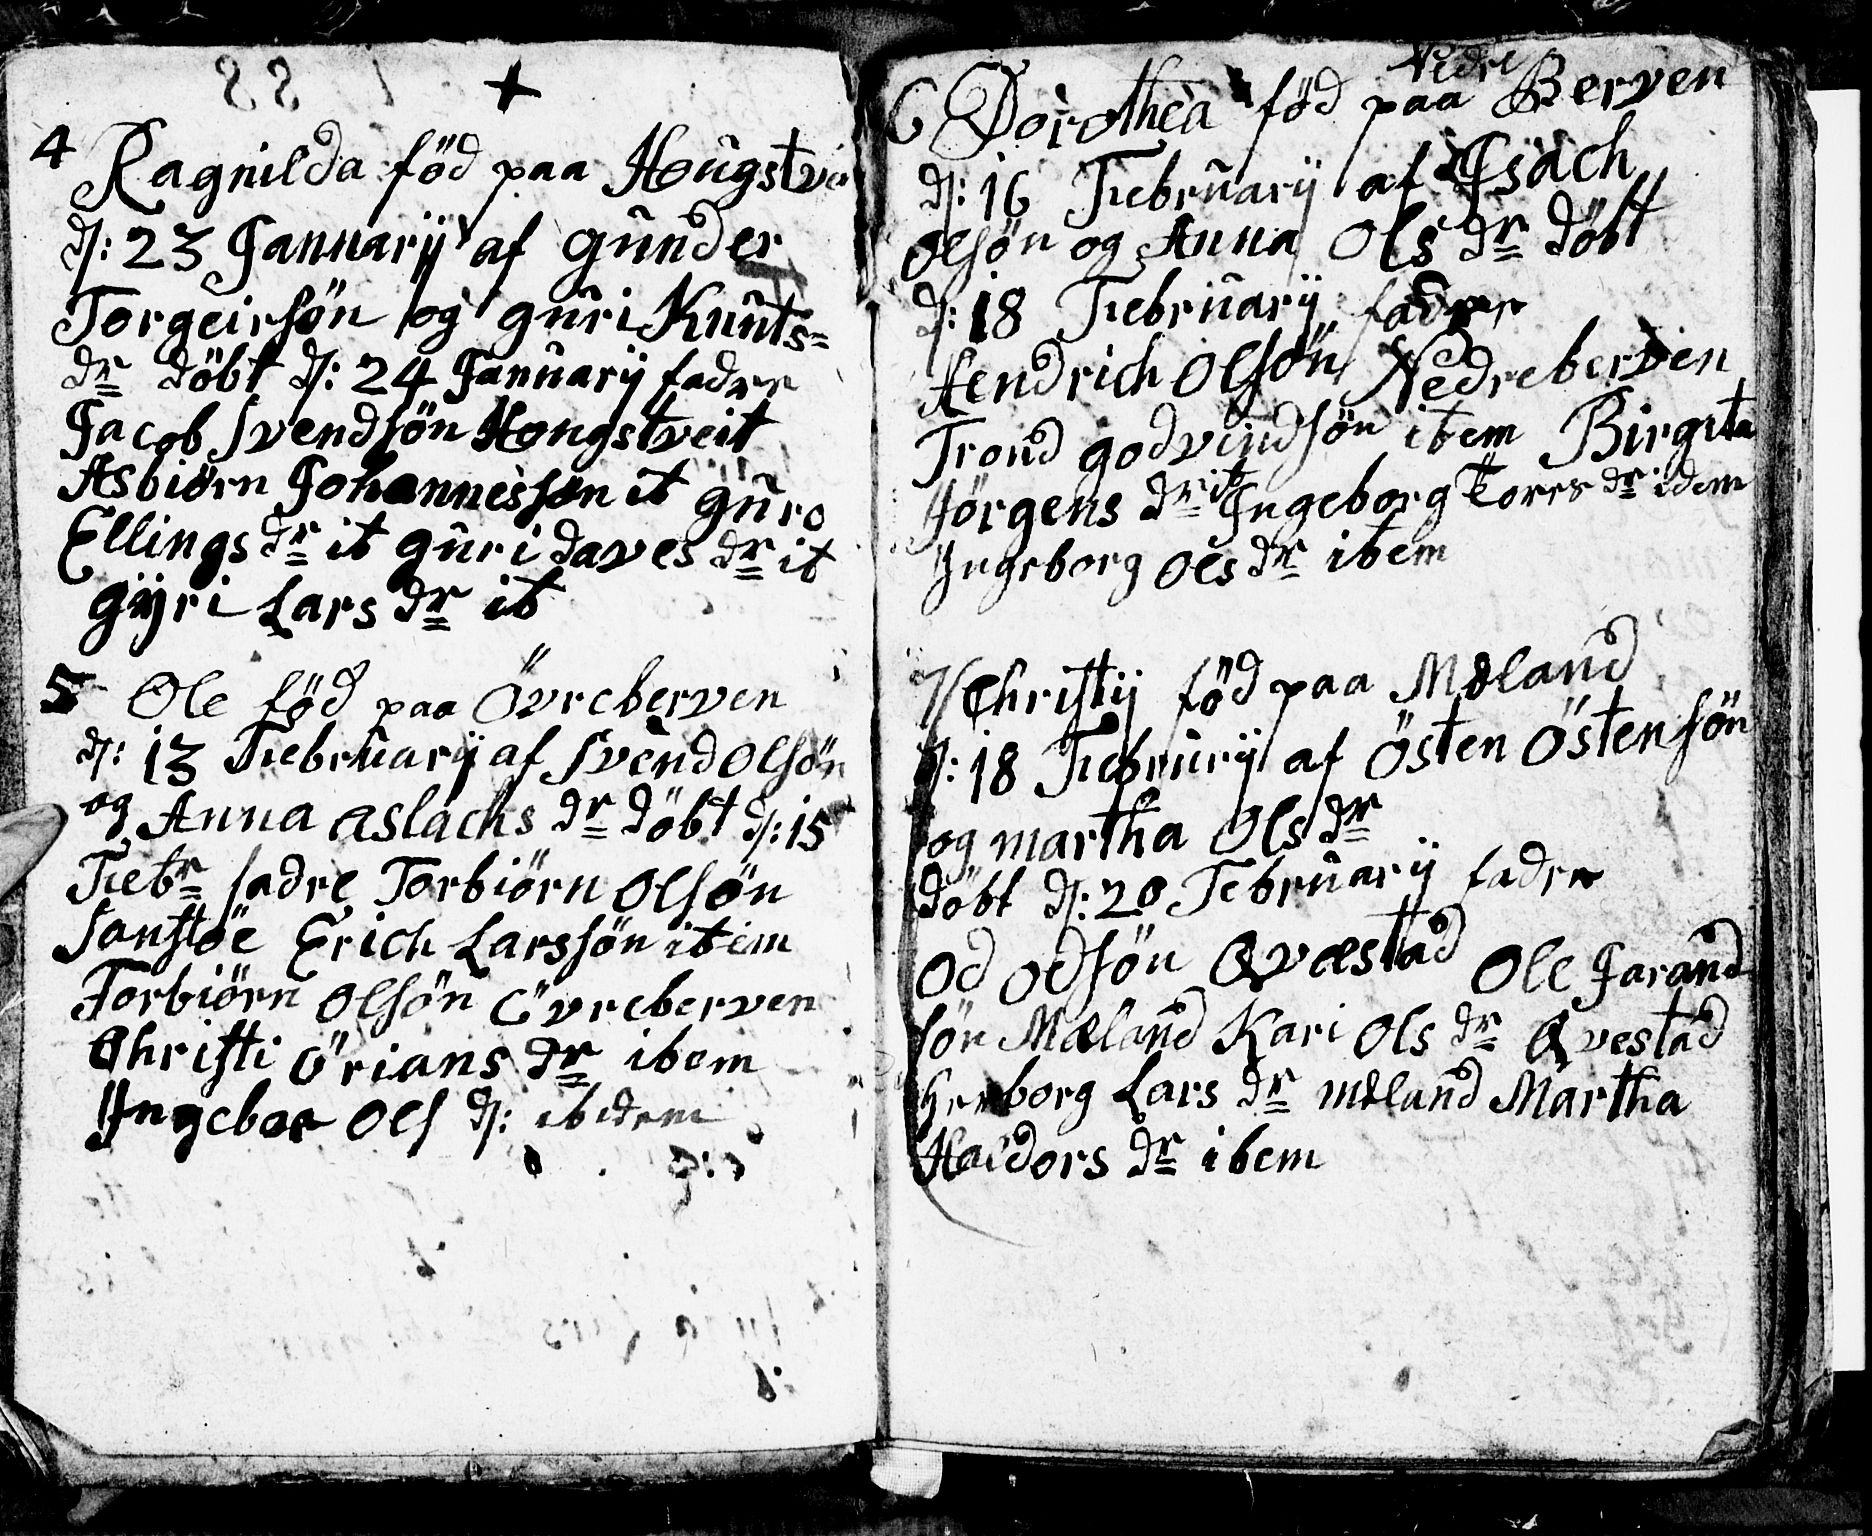 88
4 Ragnilda föd paa Hougstvei
d: 23 Januarij af gunder
Torgeirsön og guri Knuts=
dr döbt d: 24 Januarij fadre
Jacob Svendsön Hongstveit
Asbiörn Johannessön it guro
Ellings dr it guri daves dr it
gyri Lars dr it
5 Ole föd paa Övreberven
d: 13 Februarij af Svend Olsön
og Anna aslachs dr döbt d: 15
Febr fadre Torbiörn Olsön
Sanstöe Erich Larssön item
Torbiörn Olsön Övreberven
Christi Örians dr ibem
Ingebor Ols d: ibidem
6 Dorothea föd paa Nedre Berven
d: 16 Februarij af Isach
Olsön og Anna Ols dr döbt
d: 18 Februarij fadre
Hendrich Olsön Nedreberven
Trond godvindsön item Birgita
Jörgens dr it Ingeborg Tores dr idem
Ingeborg Ols dr ibem
7 Christij föd paa Mæland
d: 18 Februrij af Östen Östensön
og martha Ols dr
döbt d: 20 Februarij fadre
Od Odsön Qvæstad Ole Jarand
sön Mæland Kari Ols dr Qvestad
Herborg Lars dr Mæland Martha
Haldors dr ibem